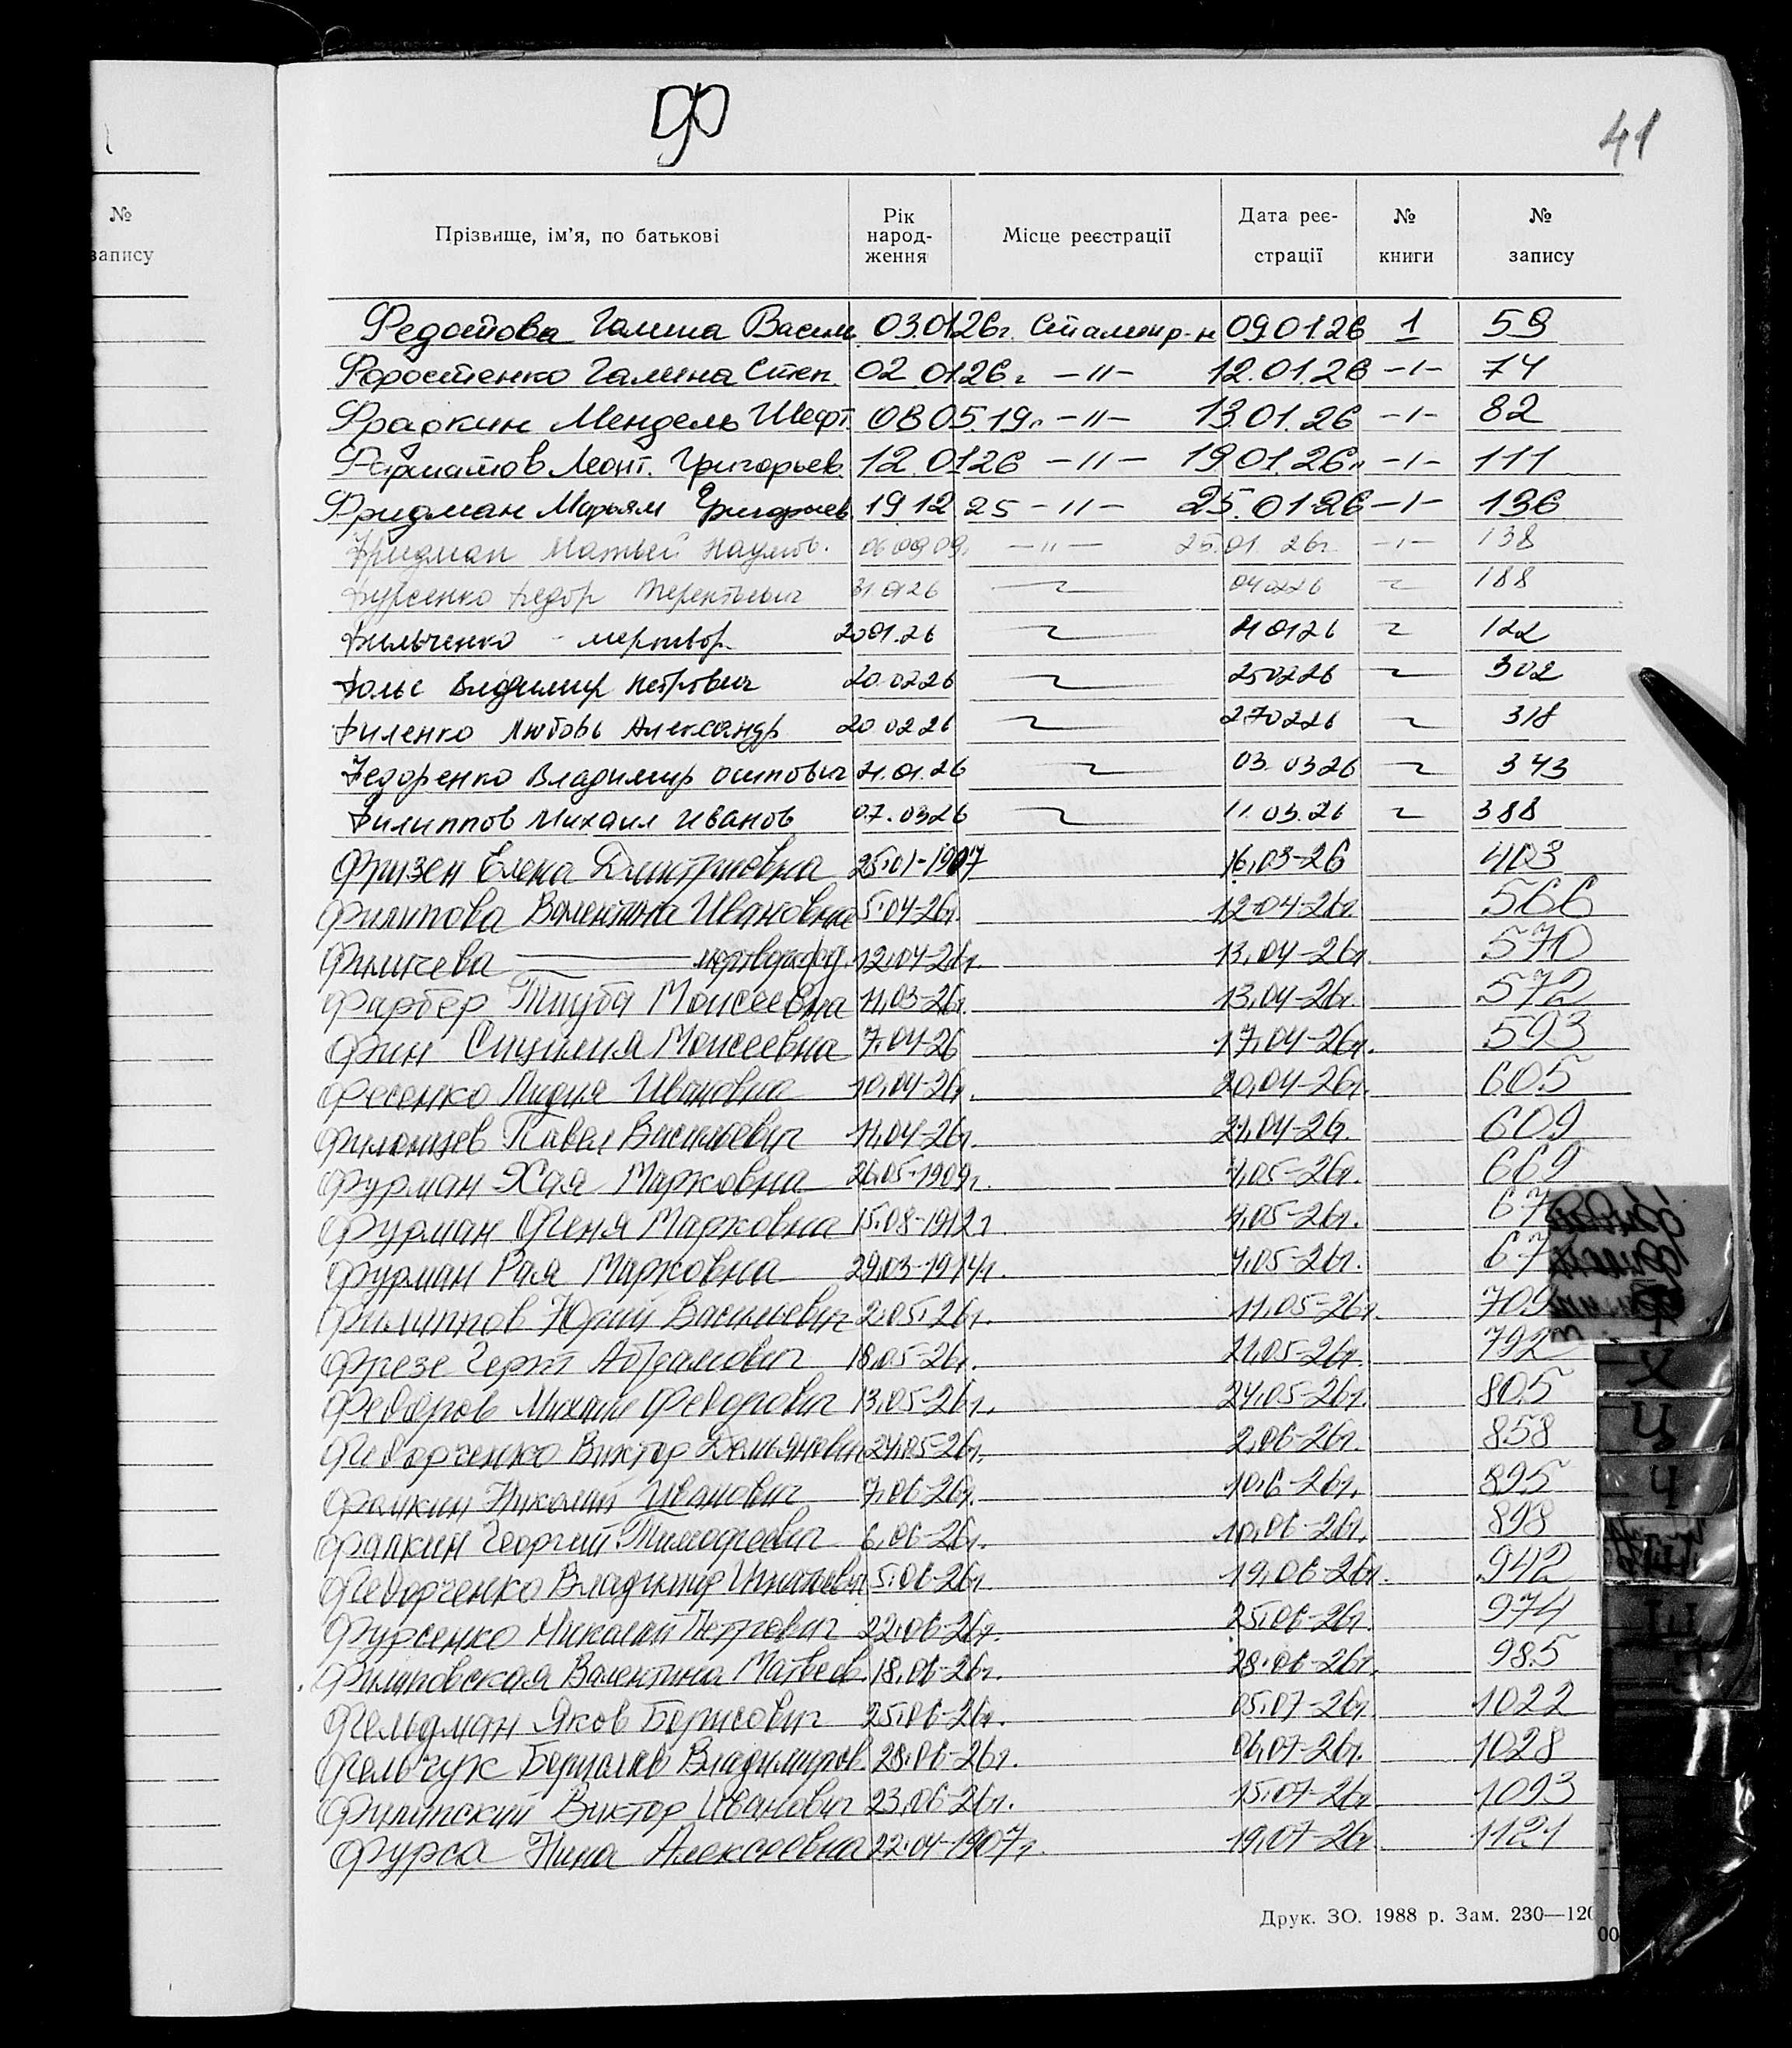 ф
41
№
запису
Прізвище, ім'я, по батькові
Рік
народ-
ження
Місце реєстрації
Дата реє-
страції
№
книги
№
запису
Федотова Галина Васил 03.01.26г. Сталин р-н 09.01.26 1 59
Форостенко Галина Степ. 02.01.26г -"- 12.01.26 -"- 74
Фрадкин Мендель Шефт. 08.05.19г -"- 13.01.26 -"- 82
Фарматов Леонт. Григорьев. 12.01.26 -"- 19.01.26г -"- 111
Фридман Марьям Григорьев. 19.12.25 -"- 25.01.26 -"- 136
Фридман Матвей Наумов. 06.09.09г -"- 25.01.26г. -"- 138
Фурсенко Федор Терентьевич 31.01.26 04.02.26 188
Фильченко - мертвор. 20.01.26 21.01.26 122
Фольс Владимир Петрович 20.02.26 25.02.26 302
Филенко Любовь Александр 20.02.26 27.02.26 318
Федоренко Владимир Осипович 21.01.26 03.03.26 343
Филиппов Михаил Иванов 07.03.26 11.03.26 388
Фризен Елена Дмитриевна 25.01-1907 16.03-26 403
Филипова Валентина Ивановна 5.04-26г. 12.04-26г. 566
Фимичева — мертворожд. 12.04-26г. 13.04-26г. 570
Фарбер Моисеевна 11.03-26г. 13.04-26г. 572
Фин Сицилия Моисеевна 7.04-26 17.04-26г. 593
Фесенко Лидия Ивановна 10.04-26г. 20.04-26г. 605
Павел Васильевич 11.04-26г. 21.04-26г. 609
Фурман Хая Марковна 26.05-1909г. 4.05-26г. 669
Фурман Феня Марковна 15.08-1912г 4.05-26г. 67
Фурман Рая Марковна 29.03-1914г. 4.05-26г. 67
Филиппов Юрий Васильевич 2.05.26г. 11.05-26г. 709
Фрезе Герт Абрамович 18.05-26г. 21.05-26г. 792
Федоров Михаил Федорович 13.05-26г. 24.05-26г. 805
Федорченко Виктор Демьянович 24.05-26г. 2.06-26г. 858
Фалкин Николай Иванович 7.06-26г. 10.6-26г. 895
Фалкин Георгий Тимофеевич 6.06-26г. 10.06-26г. 898
Федорченко Владимир Игнатьевич 5.06-26г 19.06-26г. 942
Фурсенко Николай Петрович 22.06-26г. 25.06-26г. 974
Филиповская Валентина Матвеев. 18.06-26г. 28.06-26г. 985
Фельдман Яков Борисович 25.06-26г. 05.07-26г. 1022
Фельчук Бернард Владимиров. 28.06-26г. 06.07-26г. 1028
Филинский Виктор Иванович 23.06-26г. 15.07-26г. 1093
Фурса Нина Алексеевна 22.04-1907г. 19.07-26г. 1121
Х
Ц
Ч
Ш
Друк. ЗО. 1988 р. Зам. 230—120
00